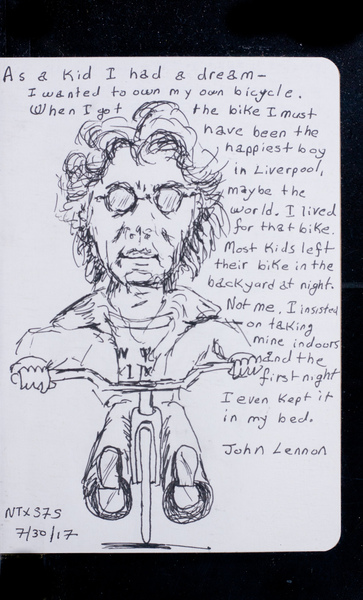 As a kid I had a dream—
I wanted to own my own bicycle.
When I got the bike I must
have been the
happiest boy
in Liverpool,
maybe the
world. I lived
for that bike.
Most kids left
their bike in the
backyard at night.
Not me, I insisted
on taking
mine indoors
and the
first night
I even kept it
in my bed.
John Lennon
NTX375
7/30/17